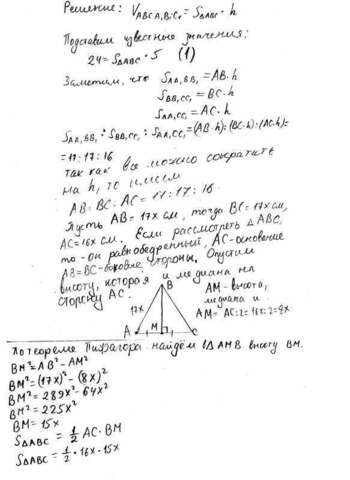 Решение: VABCA₁B₁C₁ = SΔABC · h
Подставим известные значения:
24 = SΔABC · 5 (1)
Заметим, что SAA₁BB₁ = AB · h
SBB₁CC₁ = BC · h
SAA₁CC₁ = AC · h
SAA₁BB₁ : SBB₁CC₁ : SAA₁CC₁ = (AB·h):(BC·h):(AC·h) =
= 17:17:16
так как все можно сократить
на h, то имеем
AB:BC:AC = 17:17:16.
Пусть AB = 17x см, тогда BC = 17x см,
AC = 16x см. Если рассмотреть ΔABC,
то - он равнобедренный, AC - основание
AB = BC - боковые стороны. Опустим
высоту, которая и медиана на
сторону AC.
B
17x
A
M
C
AM - высота,
медиана и
AM = AC:2 = 16x:2 = 8x
По теореме Пифагора найдём в ΔAMB высоту BM.
BM² = AB² - AM²
BM² = (17x)² - (8x)²
BM² = 289x² - 64x²
BM² = 225x²
BM = 15x
SΔABC = 1/2 AC · BM
SΔABC = 1/2 · 16x · 15x